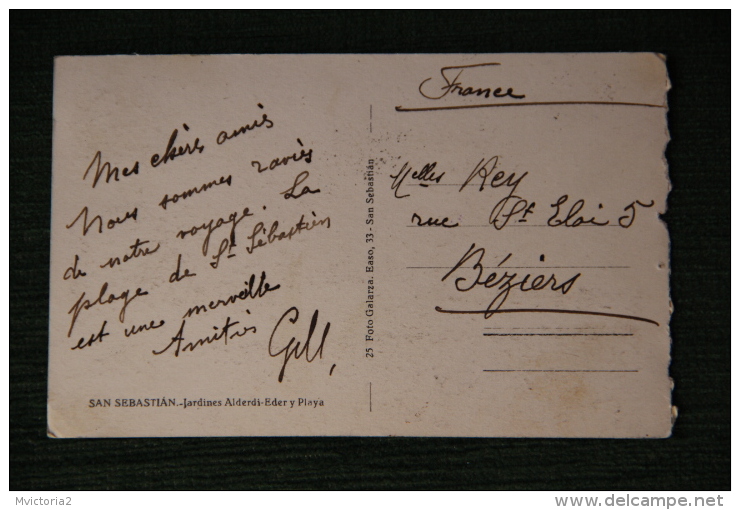 Mes chères amies
Nous sommes ravies
de notre voyage. La
plage de St Sébastien
est une merveille
Amitiés
SAN SEBASTIÁN.-Jardines Alderdi-Eder y Playa
25 Foto Galarza. Easo, 33 - San Sebastián
France
Melles Rey
rue St Eloi 5
Béziers
Mvictoria2
http://www.delcampe.net